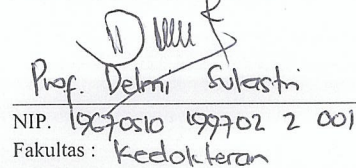 Prof. Delmi Sulastri
NIP. 19670510 199702 2 001
Fakultas : Kedokteran